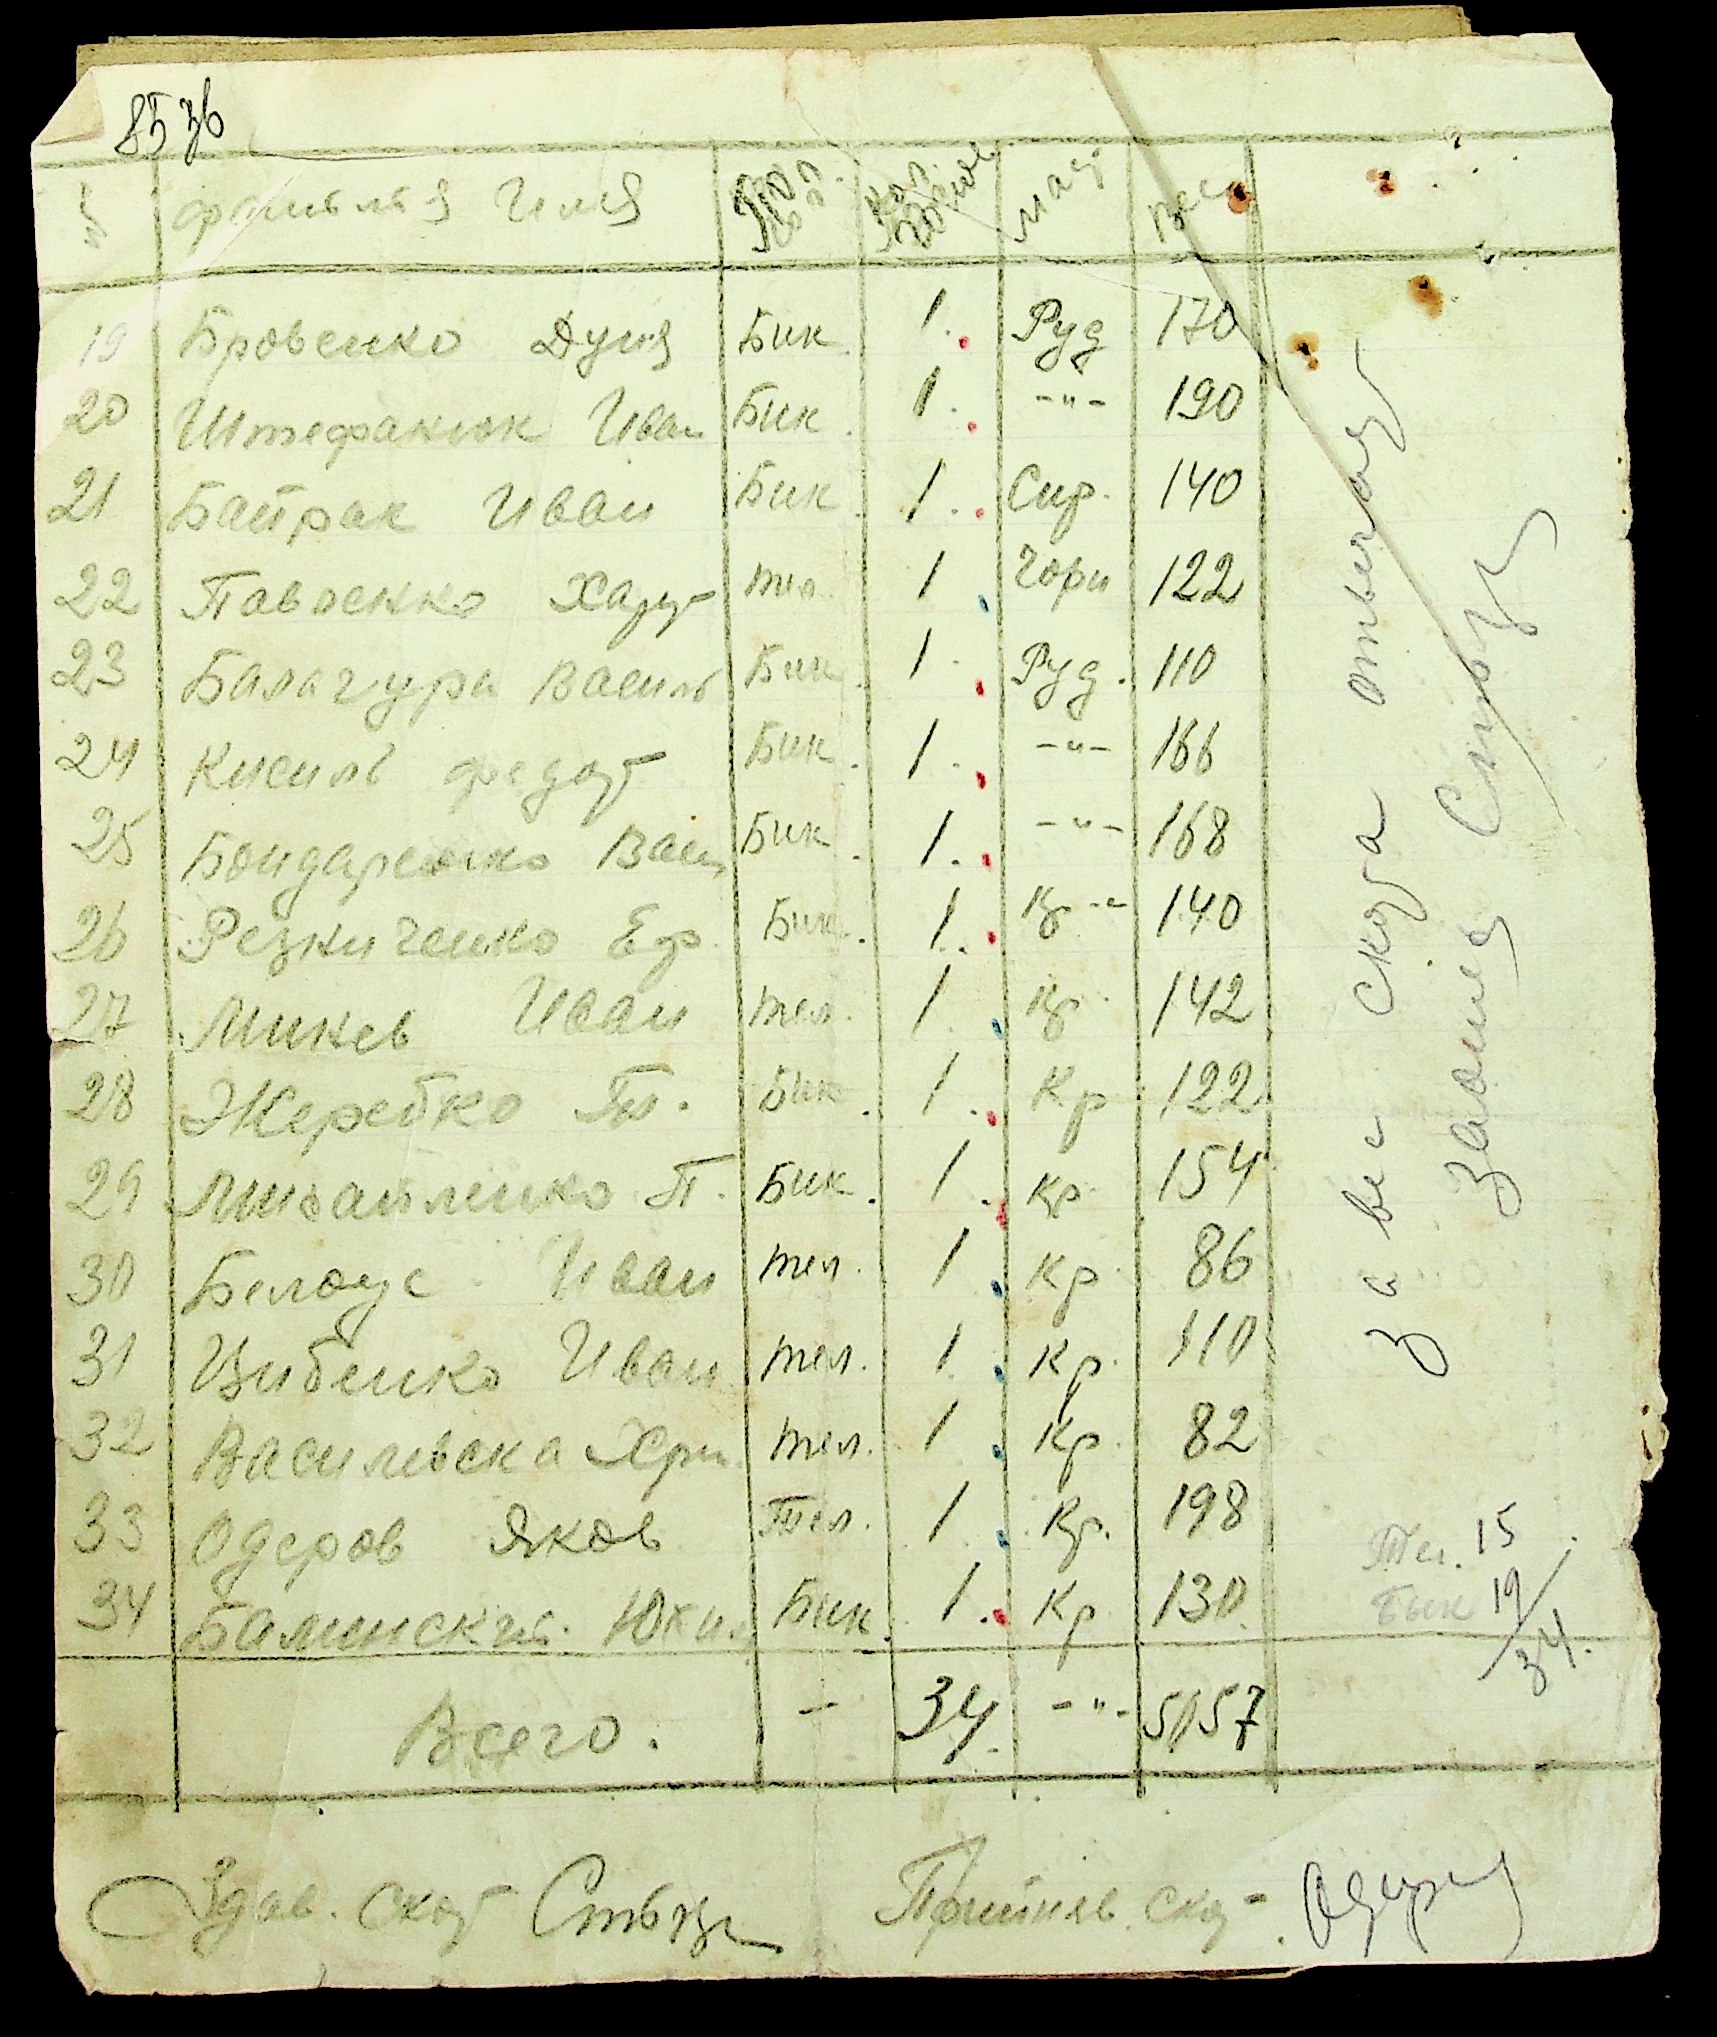 85 зв
№ фамилия Имя масц вес
19 Бровенко Дуня Бик 1. Руд 170
20 Штефанюк Иван Бик 1. -"- 190
21 Байрак Иван Бик 1. Сир. 140
22 Павленко тел. 1 Чорн 122
23 Балагура Василь Бик. 1. Руд. 110
24 Кисиль Федот Бик. 1. -"- 166
25 Бондаренко Вас. Бик. 1. -"- 168
26 Резниченко Еф. Бик. 1. Кр -"- 140
27 Минев Иван тел. 1. Кр. 142
28 Жеребко Т. Бик. 1. Кр 122
29 Михайленко П. Бик. 1. Кр. 154
30 Белоус Иван тел. 1 Кр 86
31 Цибенко Иван тел. 1. Кр. 110
32 Василевска Хри. тел. 1 Кр. 82
33 Одеров Яков Тел. 1. Кр. 198
34 Бик. 1. Кр 130
Всего. - 34 -"- 5057
за вес скота отвечаю
Тел. 15
Бык 19
34.
Здав. скот
Прийняв скот.